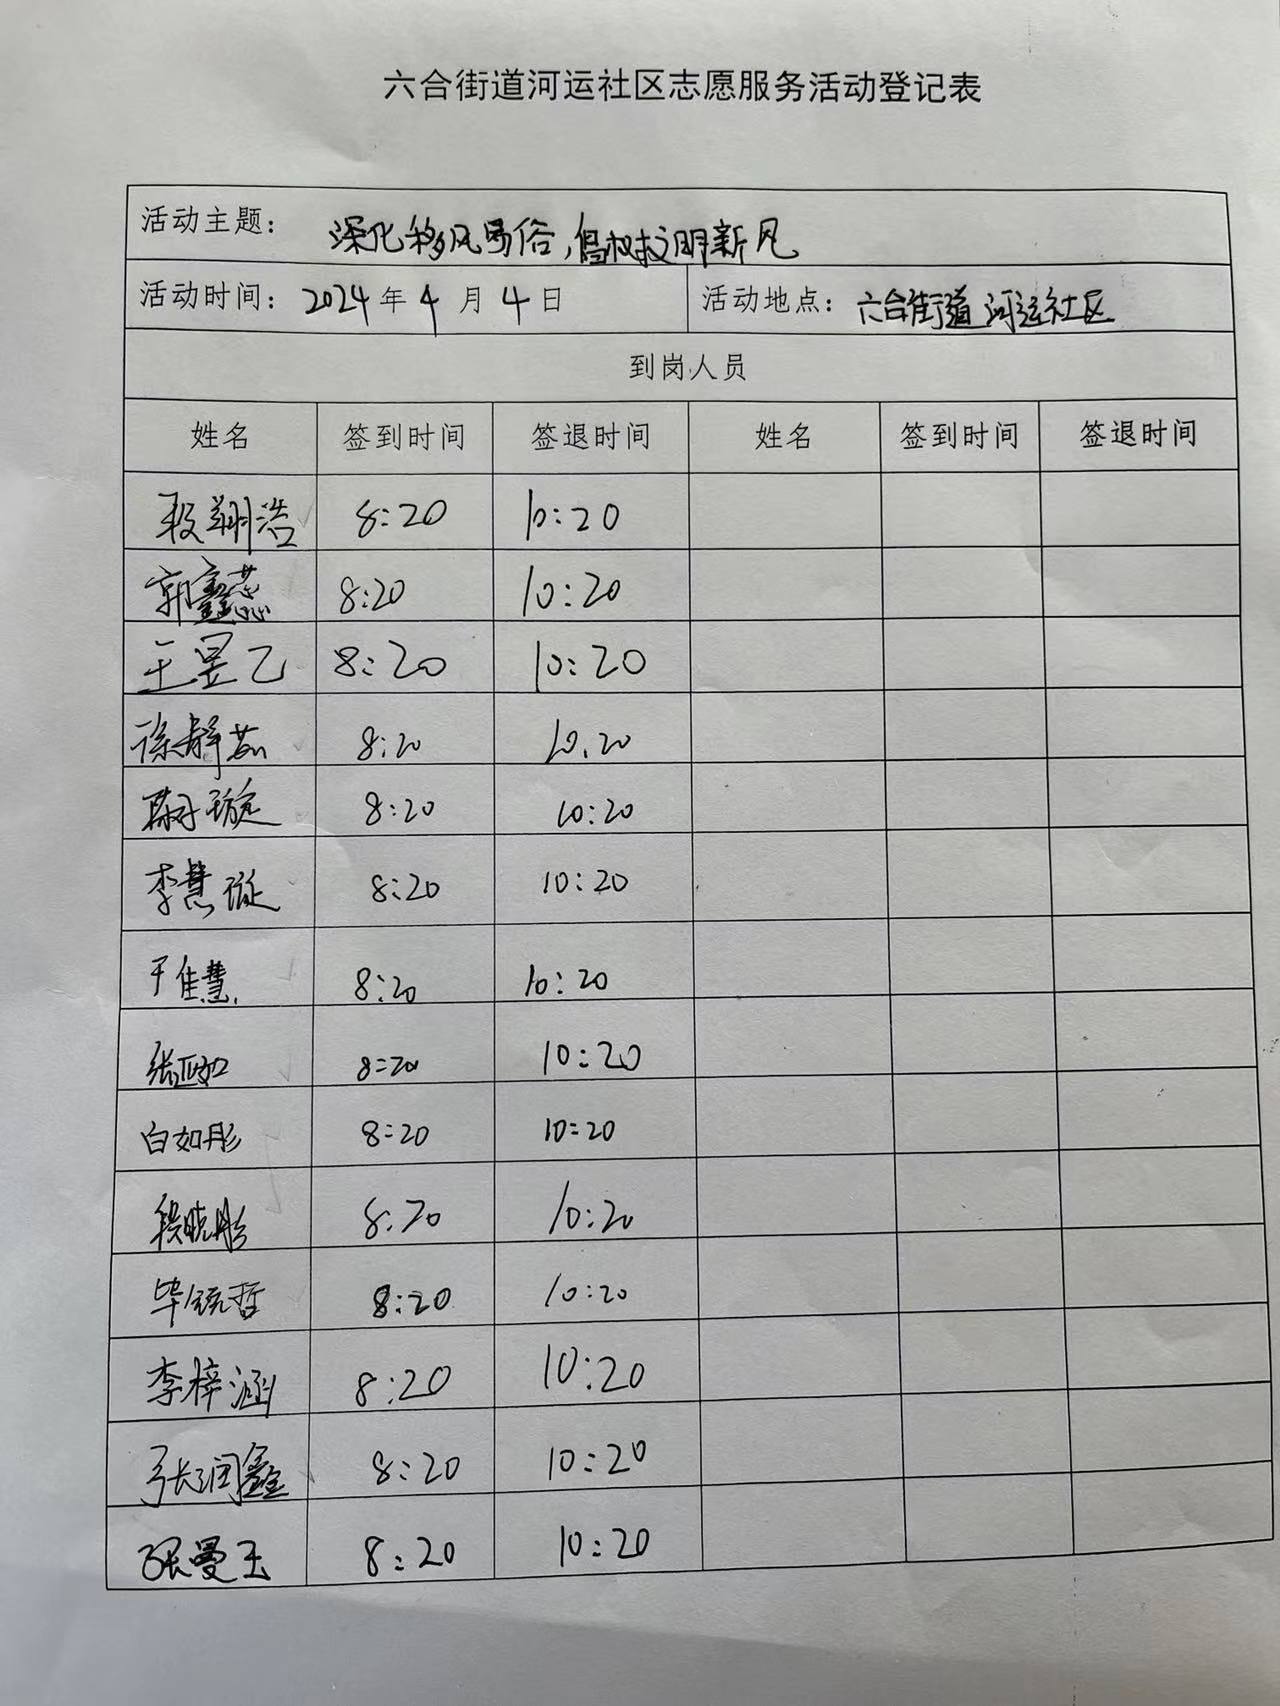 六合街道河运社区志愿服务活动登记表
活动主题： 深化移风易俗，倡树文明新风
活动时间：2024年4月4日 活动地点：六合街道河运社区
到岗人员
姓名 签到时间 签退时间 姓名 签到时间 签退时间
段翔浩 8:20 10:20
郭鑫蕊 8:20 10:20
王昱乙 8:20 10:20
徐静茹 8:20 10:20
8:20 10:20
李慧璇 8:20 10:20
于佳慧 8:20 10:20
张亚如 8:20 10:20
白如彤 8:20 10:20
段晓彤 8:20 10:20
毕铳哲 8:20 10:20
李梓涵 8:20 10:20
张润鑫 8:20 10:20
张曼玉 8:20 10:20